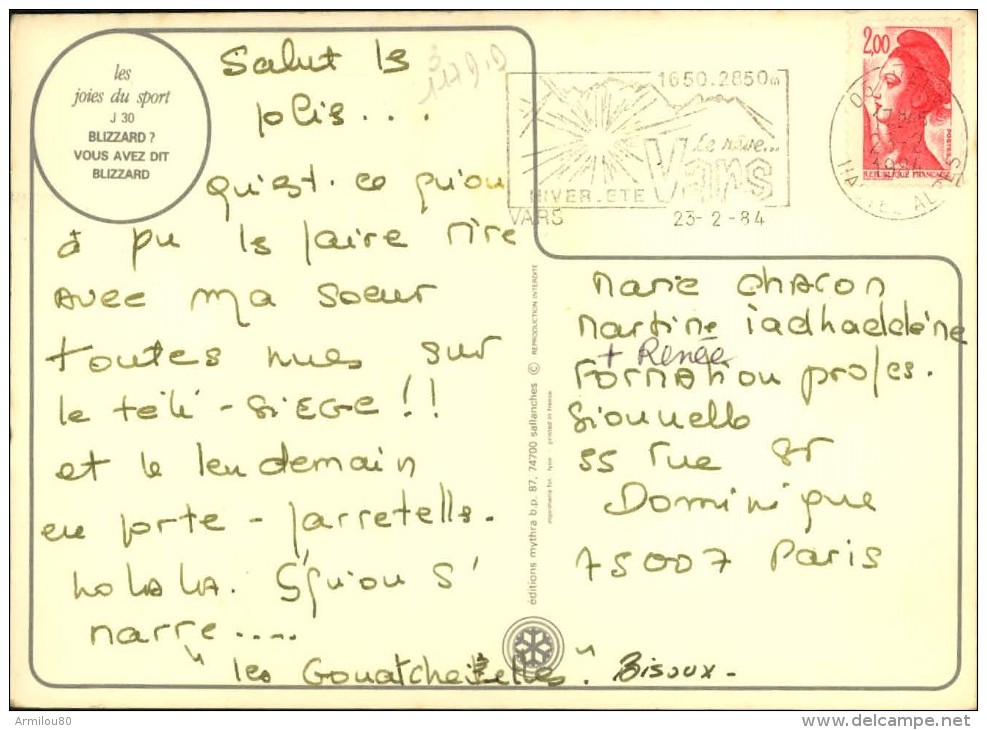 les
joies du sport
J 30
BLIZZARD ?
VOUS AVEZ DIT
BLIZZARD
Salut ls
plis...
qu'est-ce qu'on
à pu ls faire rire
Avec ma soeur
toutes nues sur
le télé-SIEGE!!
et le lendemain
en porte-jarretelle.
ho LA LA. S'qu'on s'
narre....
"les Gouatchebelles" Bisoux-
1650.2850m
Le rêve...
Vars
HIVER.ETE
VARS
23-2-84
2,00
POSTES
REPUBLIQUE FRANÇAISE
1984
Marie CHACON
Martine iadhaddène
+ Renée
FORMATION profes.
sionnelle
55 rue St
Dominique
75007 Paris
éditions mythra b.p. 87, 74700 sallanches © REPRODUCTION INTERDITE
printed in france
Armilou80
www.delcampe.net